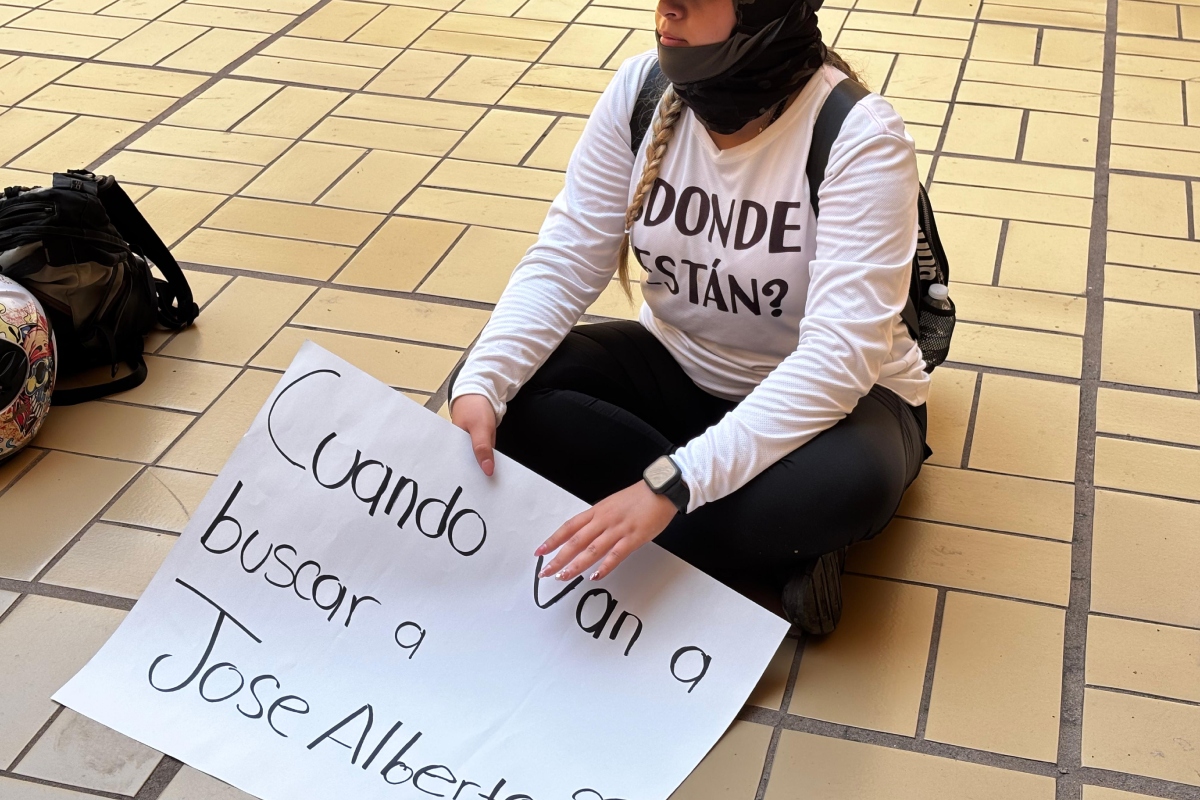 DONDE
ESTÁN?
Cuando van a
buscar a
Jose Alberto